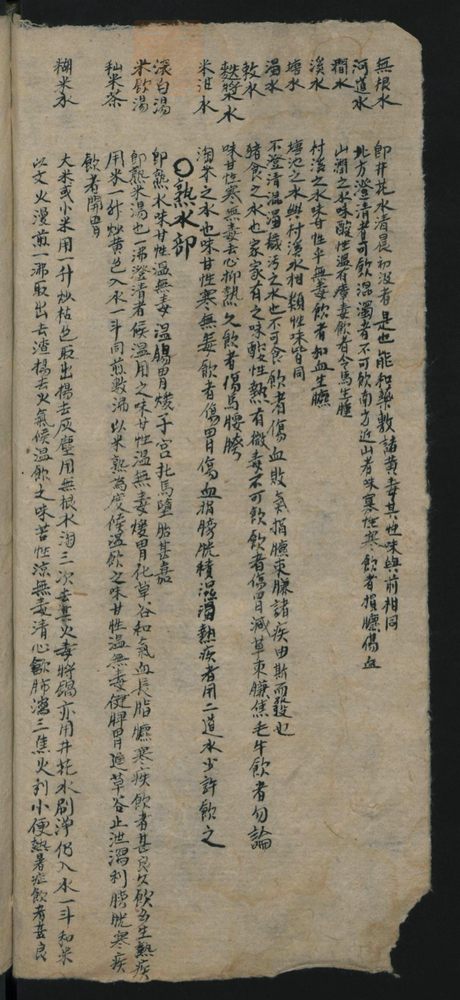 無根水 即井花水清晨初汲者是也能和藥敷諸黃毒其性味與前相同
河道水 北方澄清者可飲混濁者不可飲南方近山者味寒性寒飲者損臕傷血
澗水 山澗之水味酸性溫有微毒飲者令馬生腫
溪水 村溪之水味甘性平無毒飲者和血生臕
塘水 塘池之水與村溪水相類性味皆同
濁水 不澄清混濁穢污之水也不可食飲者傷血敗氣損臕束臁諸疾由斯而發也
豬食之水也家家有之味酸性熱有微毒不可飲飲者傷胃減草束臁焦毛牛飲者勿論
漿水 味甘性寒無毒去心抑熱久飲者傷馬腰胯
米泔水 淘米之水也味甘性寒無毒飲者傷胃傷血損膀胱積濕濁熱疾者用二道水少許飲之
〇熟水部
滾白湯 即熱水味甘性溫無毒溫腸胃煖子宮牝馬墮胎甚嘉
米飲湯 即熟米湯也一沸澄清者候溫用之味甘性溫無毒煖胃化草谷和氣血長脂臕寒疾飲者甚良久飲多生熱疾
秈米茶 用米一升炒黃色入水一斗同煎數沸以米熟為度候溫飲之味甘性溫無毒健脾胃進草谷止泄瀉利膀胱寒疾
飲者開胃
糊米水 大米或小米用一升炒枯色取出揚去灰塵用無根水淘三次去其火毒將鍋亦用井花水刷淨仍入水一斗和米
以文火漫煎一沸取出去渣揚去火氣候溫飲之味苦性涼無毒清心斂肺瀉三焦火利小便熱暑症飲者甚良